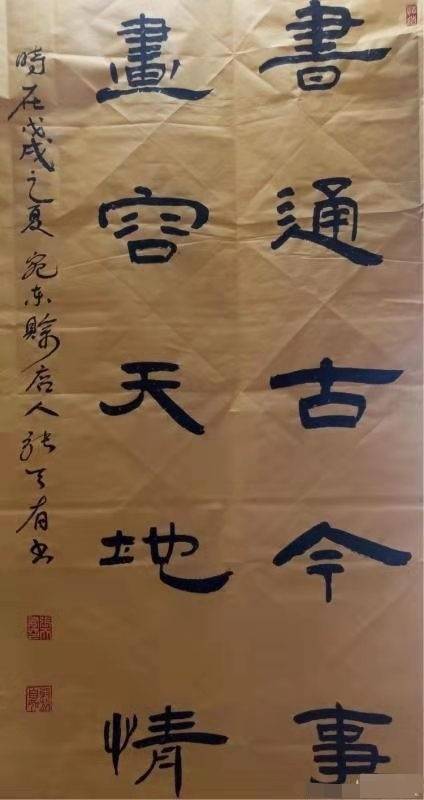 書通古今事
畫容天地情
時在戊戌之夏 宛東賒店人張天有書